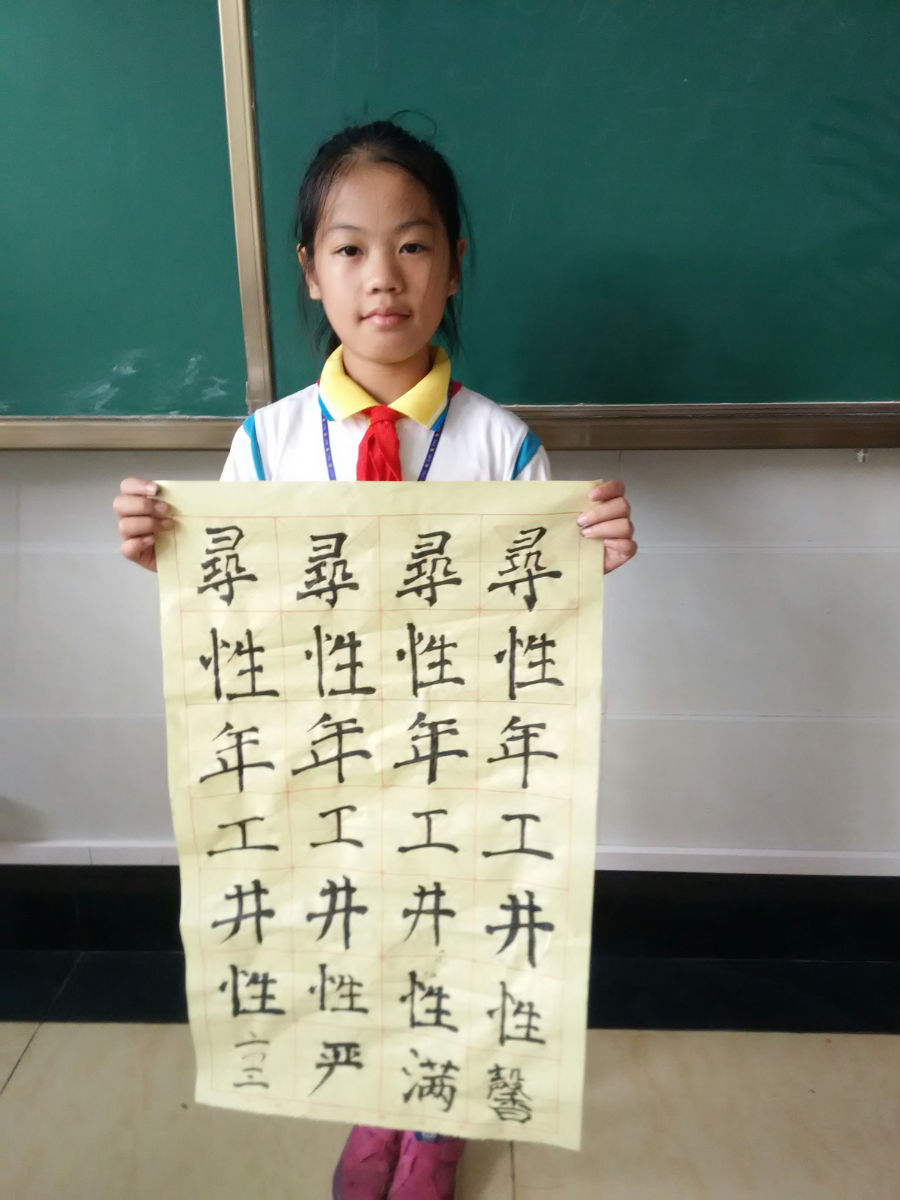 尋尋尋尋
性性性性
年年年年
工工工工
井井井井
性性性性
六二严满馨